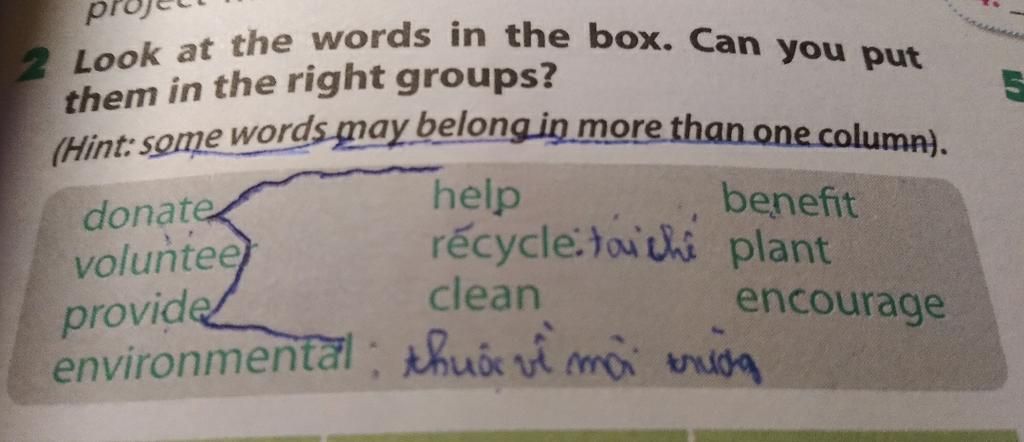 2 Look at the words in the box. Can you put
them in the right groups?
(Hint: some words may belong in more than one column).
donate help benefit
volunteer recycle : tái chế plant
provide clean encourage
environmental : thuộc về môi trường
5